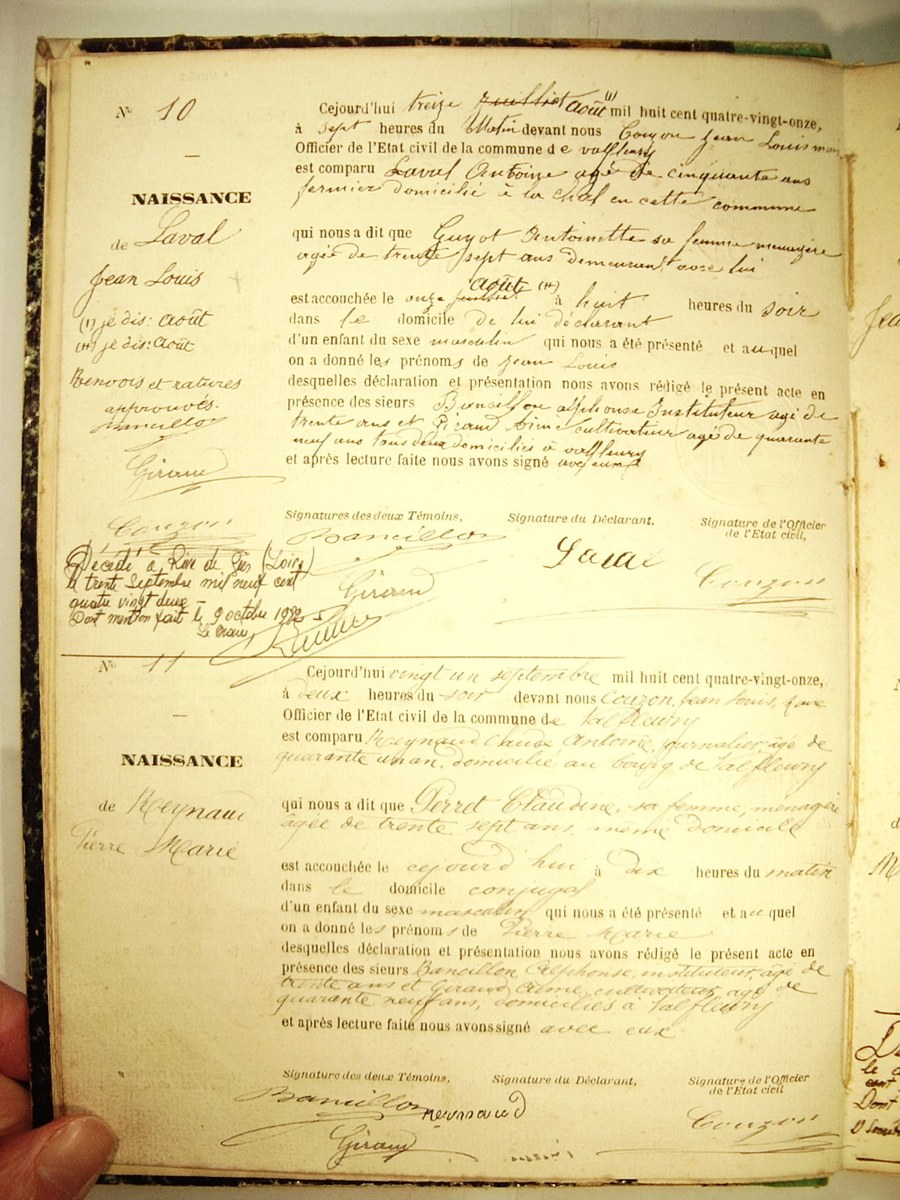 No 10
NAISSANCE
de Laval
Jean Louis
(1) je dis: Août
(11) je dis: Août
Renvois et ratures
approuvés.
Bancillon
Giraud
Couzon
Décédé à Rive de Gier (Loire)
le trente Septembre mil neuf cent
quatre vingt deux -
Dont mention fait le 9 octobre 1982
Le Maire
Cejourd'hui treize juillet Août (1) mil huit cent quatre-vingt-onze,
à sept heures du Matin devant nous Couzon Jean Louis maire
Officier de l'Etat civil de la commune de valfleury
est comparu Laval Antoine agé de cinquante ans
fermier domicilié à la Chal en cette commune
qui nous a dit que Guyot Antoinette sa femme menagère
agée de trente sept ans demeurant avec lui
est accouchée le onze juillet Août (11) à huit heures du soir
dans le domicile de lui déclarant
d'un enfant du sexe masculin qui nous a été présenté et auquel
on a donné les prénoms de Jean Louis
desquelles déclaration et présentation nous avons rédigé le présent acte en
présence des sieurs Bancillon alphonse Instituteur agé de
trente ans et Giraud Aimé cultivateur agé de quarante
neuf ans tous deux domiciliés à valfleury
et après lecture faite nous avons signé avec eux
Signatures des deux Témoins, Signature du Déclarant, Signature de l'Officier
de l'Etat civil,
Bancillon Laval
Giraud Couzon
No 11
NAISSANCE
de Reynaud
Pierre Marie
Cejourd'hui vingt un septembre mil huit cent quatre-vingt-onze,
à deux heures du soir devant nous Couzon, Jean Louis, Maire
Officier de l'Etat civil de la commune de Valfleury
est comparu Reynaud Claude Antoine, journalier, âgé de
quarante un an, domicilié au bourg de Valfleury
qui nous a dit que Perret Claudine, sa femme, menagère
âgée de trente sept ans, même domicile
est accouchée le cejourd'hui à dix heures du matin
dans le domicile conjugal
d'un enfant du sexe masculin qui nous a été présenté et auquel
on a donné les prénoms de Pierre Marie
desquelles déclaration et présentation nous avons rédigé le présent acte en
présence des sieurs Bancillon Alphonse, instituteur, âgé de
trente ans et Giraud Aimé, cultivateur, agé de
quarante neuf ans, domiciliés à Valfleury
et après lecture faite nous avons signé avec eux
Signature des deux Témoins, Signature du Déclarant, Signature de l'Officier
de l'Etat civil
Bancillon Reynaud Couzon
Giraud